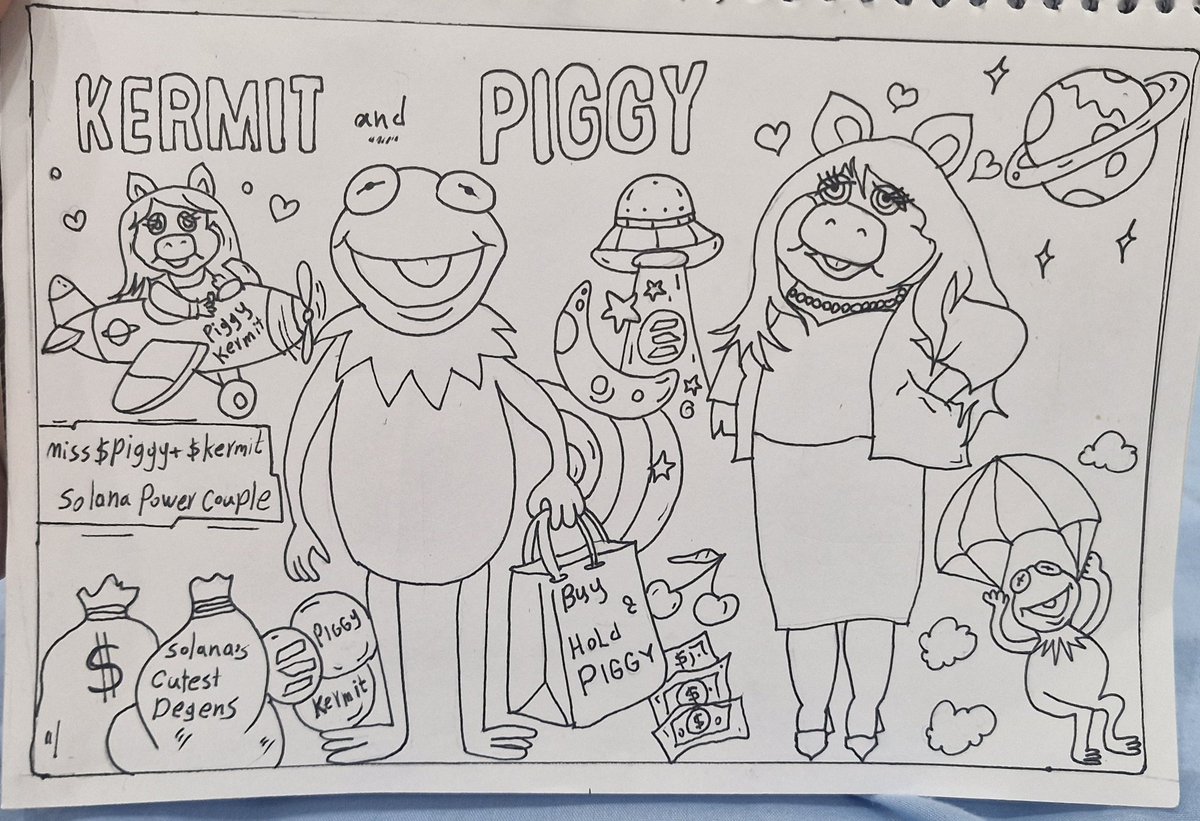 KERMIT and PIGGY
Piggy
Kermit
miss $Piggy+ $kermit
Solana Power Couple
$
Solana's
Cutest
Degens
PIGGY
Kermit
Buy &
HoLd
PIGGY
$
$